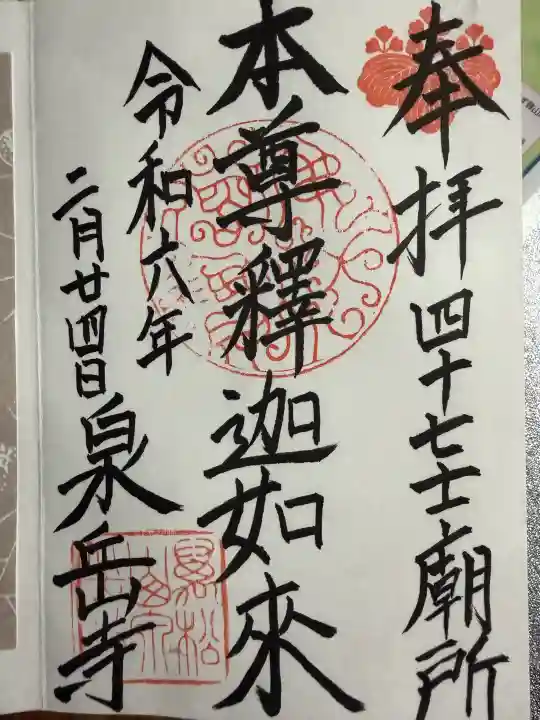 奉拝 四十七士廟所
本尊釋迦如來
令和六年
二月廿四日 泉岳寺
萬松